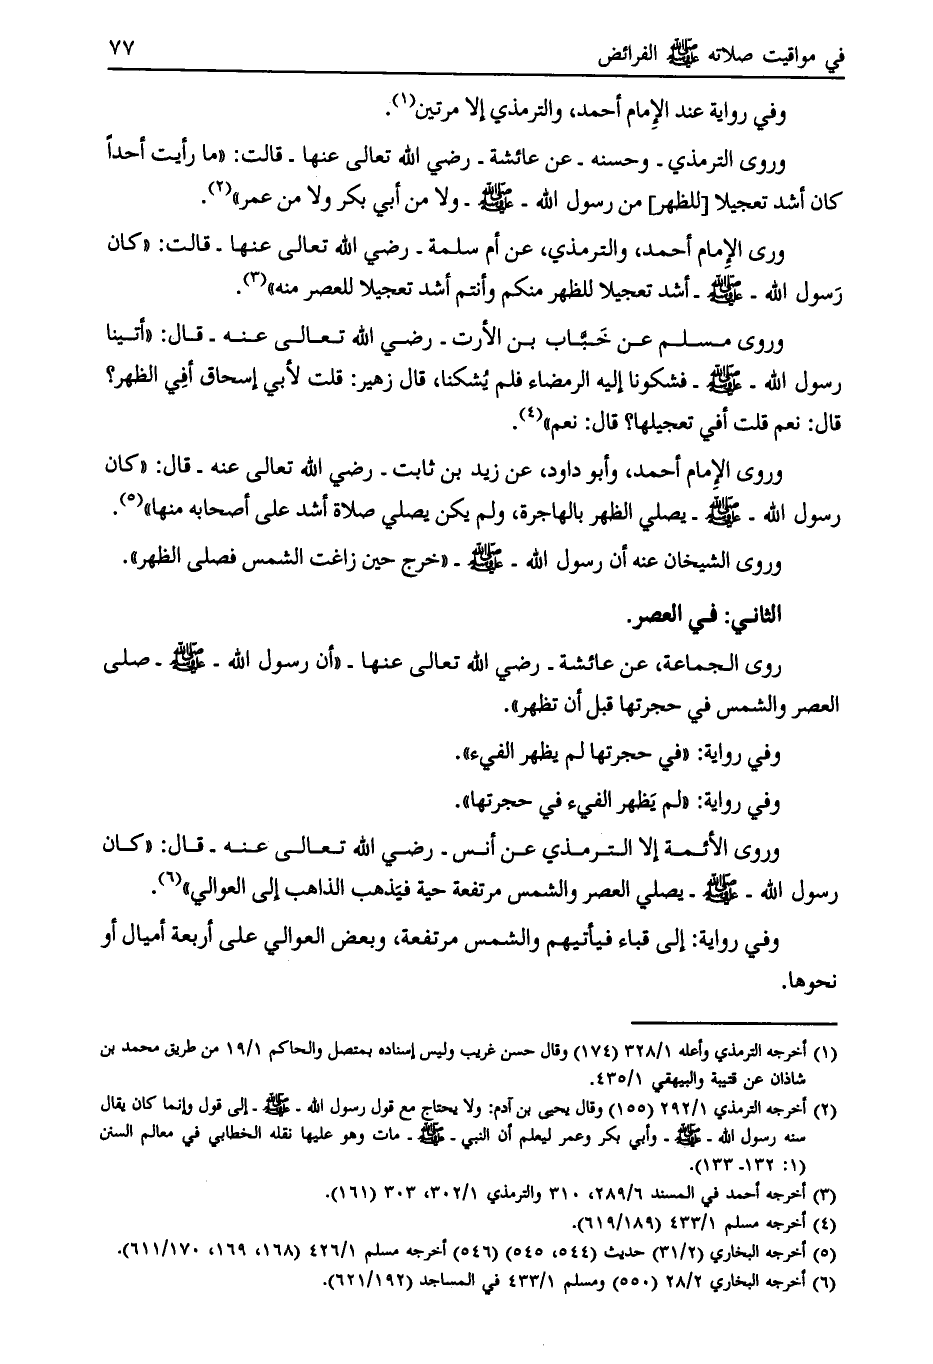 في مواقيت صلاته ﷺ الفرائض ٧٧
وفي رواية عند الإِمام أحمد، والترمذي إلا مرتين(١).
وروى الترمذي ـ وحسنه ـ عن عائشة ـ رضي الله تعالى عنها ـ قالت: «ما رأيت أحداً
كان أشد تعجيلا [للظهر] من رسول الله ـ ﷺ ـ ولا من أبي بكر ولا من عمر»(٢).
ورى الإِمام أحمد، والترمذي، عن أم سلمة ـ رضي الله تعالى عنها ـ قالت: «كان
رَسول الله ـ ﷺ ـ أشد تعجيلا للظهر منكم وأنتم أشد تعجيلا للعصر منه»(٣).
وروى مسلم عن خَبَّاب بن الأرت ـ رضي الله تعالى عنه ـ قال: «أتينا
رسول الله ـ ﷺ ـ فشكونا إليه الرمضاء فلم يُشكنا، قال زهير: قلت لأبي إسحاق أفِي الظهر؟
قال: نعم قلت أفي تعجيلها؟ قال: نعم»(٤).
وروى الإِمام أحمد، وأبو داود، عن زيد بن ثابت ـ رضي الله تعالى عنه ـ قال: «كان
رسول الله ـ ﷺ ـ يصلي الظهر بالهاجرة، ولم يكن يصلي صلاة أشد على أصحابه منها»(٥).
وروى الشيخان عنه أن رسول الله ـ ﷺ ـ «خرج حين زاغت الشمس فصلى الظهر».
الثاني: في العصر.
روى الجماعة، عن عائشة ـ رضي الله تعالى عنها ـ «أن رسول الله ـ ﷺ ـ صلى
العصر والشمس في حجرتها قبل أن تظهر».
وفي رواية: «في حجرتها لم يظهر الفيء».
وفي رواية: «لم يَظهر الفيء في حجرتها».
وروى الأئمة إلا الترمذي عن أنس ـ رضي الله تعالى عنه ـ قال: «كان
رسول الله ـ ﷺ ـ يصلي العصر والشمس مرتفعة حية فيَذهب الذاهب إلى العوالي»(٦).
وفي رواية: إلى قباء فيأتيهم والشمس مرتفعة، وبعض العوالي على أربعة أميال أو
نحوها.
(١) أخرجه الترمذي وأعله ٣٢٨/١ (١٧٤) وقال حسن غريب وليس إسناده بمتصل والحاكم ١٩/١ من طريق محمد بن
شاذان عن قتيبة والبيهقي ٤٣٥/١.
(٢) أخرجه الترمذي ٢٩٢/١ (١٥٥) وقال يحيى بن آدم: ولا يحتاج مع قول رسول الله ـ ﷺ ـ إلى قول وإنما كان يقال
سنه رسول الله ـ ﷺ ـ وأبي بكر وعمر ليعلم أن النبي ـ ﷺ ـ مات وهو عليها نقله الخطابي في معالم السنن
(١: ١٣٢ـ ١٣٣).
(٣) أخرجه أحمد في المسند ٢٨٩/٦، ٣١٠ والترمذي ٣٠٢/١، ٣٠٣ (١٦١).
(٤) أخرجه مسلم ٤٣٣/١ (٦١٩/١٨٩).
(٥) أخرجه البخاري (٣١/٢) حديث (٥٤٤، ٥٤٥) (٥٤٦) أخرجه مسلم ٤٢٦/١ (١٦٨، ١٦٩، ٦١١/١٧٠).
(٦) أخرجه البخاري ٢٨/٢ (٥٥٠) ومسلم ٤٣٣/١ في المساجد (٦٢١/١٩٢).